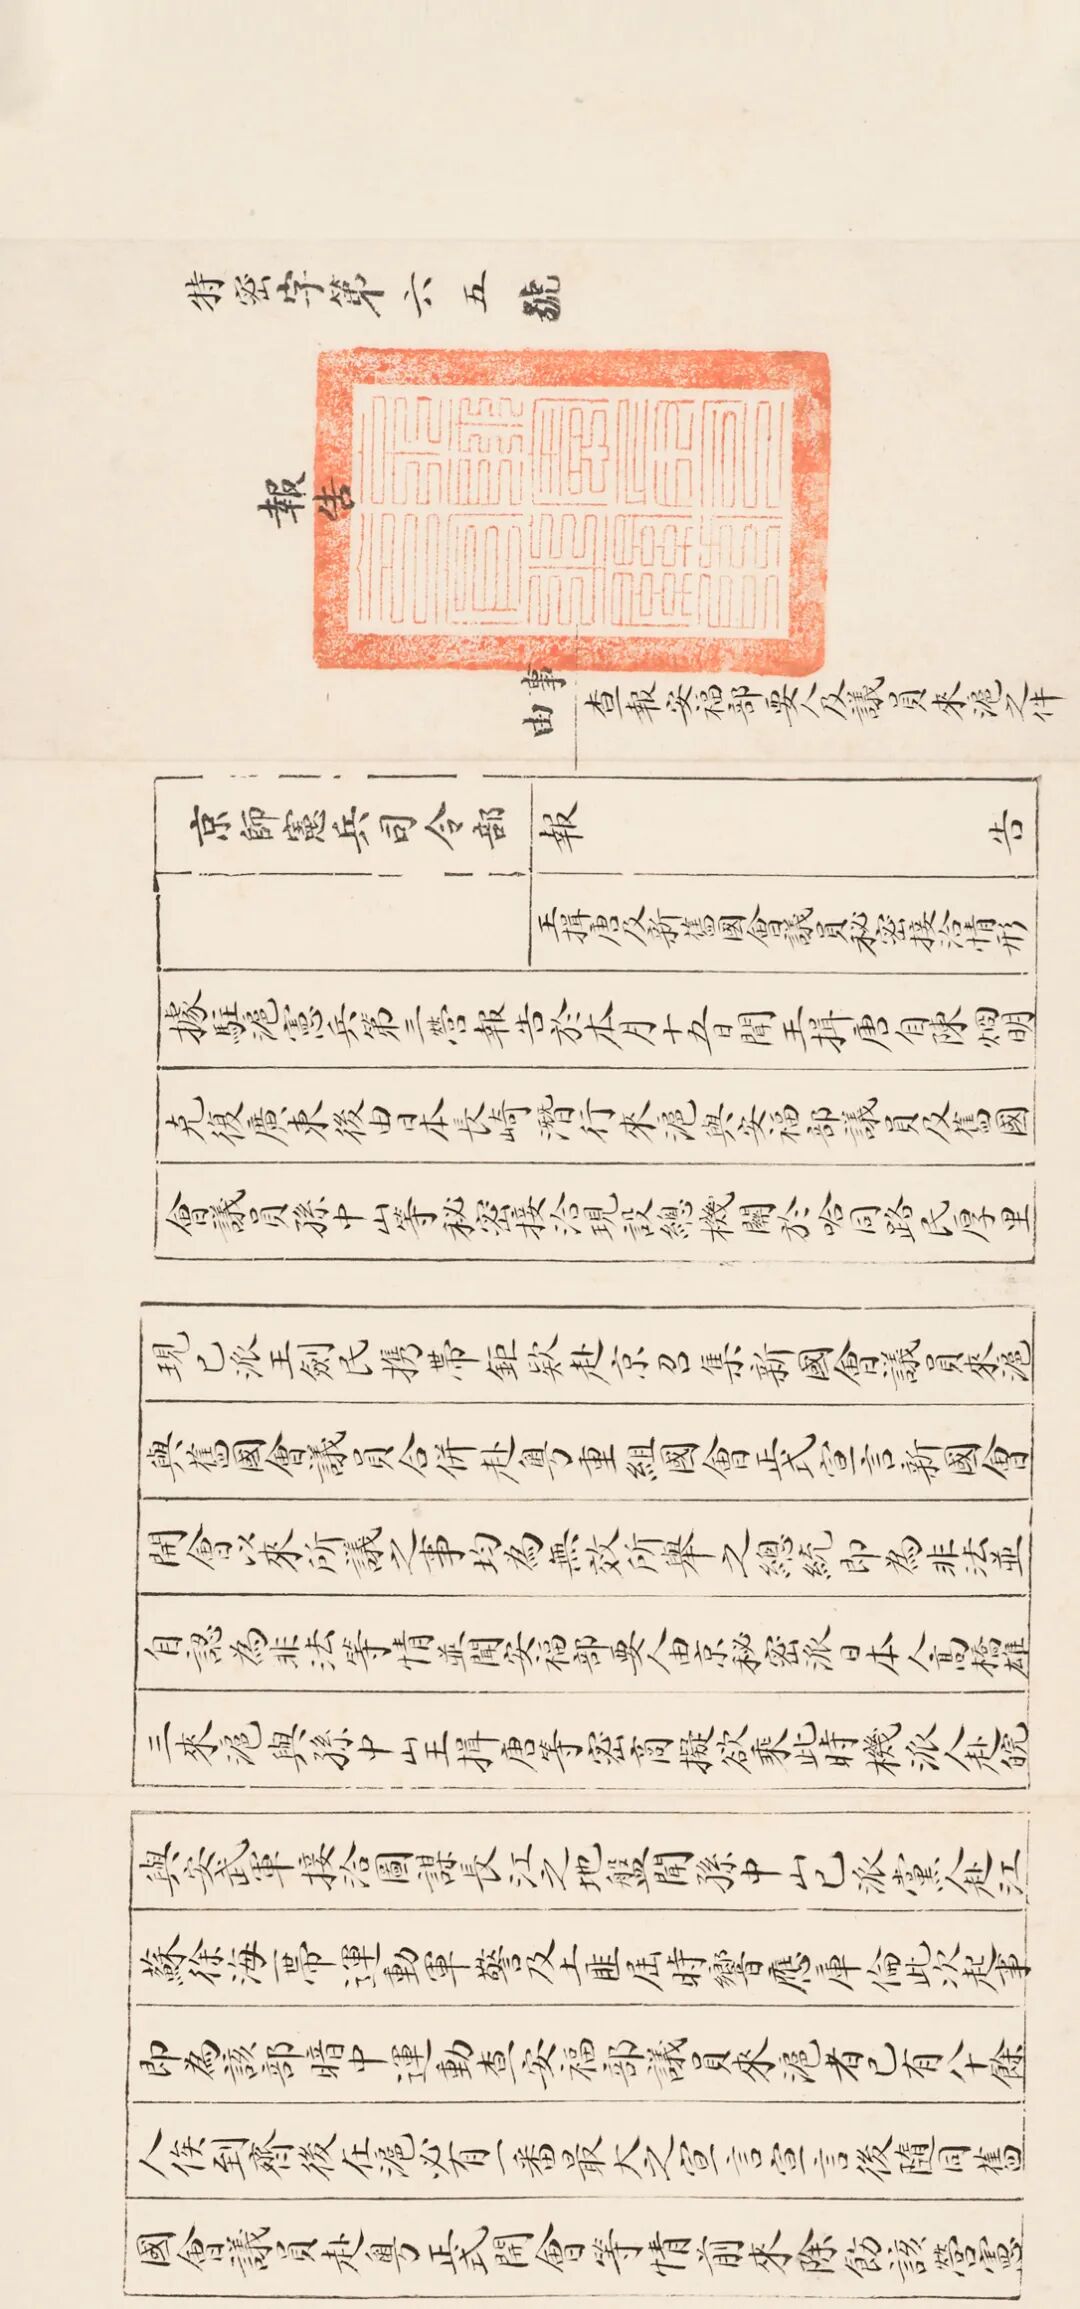 特密字第六五號
報告
事由
查報安福部要人及議員來滬之件
京師憲兵司令部
報告
王揖唐及新舊國會議員秘密接洽情形
據駐滬憲兵第三營報告於本月十五日聞王揖唐自陳炯明
克復廣東後由日本長崎潛行來滬與安福部議員及舊國
會議員孫中山等秘密接洽現設總機關於哈同路民厚里
現已派王劍民携帶鉅款赴京召集新國會議員來滬
與舊國會議員合併赴粵重組國會正式宣言新國會
開會以來所議之事均為無效所舉之總統即為非法並
自認為非法等情並聞安福部要人由京秘密派日本人高橋雄
三來滬與孫中山王揖唐等密商擬欲乘此時機派人赴皖
與安武軍接洽圖謀長江之地盤聞孫中山已派黨人赴江
蘇徐海一帶運動軍警及土匪屆時響應庫倫此次起事
即為該部暗中運動查安福部議員來滬者已有八十餘
人俟到齊後在滬必有一番最大之宣言宣言後隨同舊
國會議員赴粵正式開會等情前來除飭該營憲